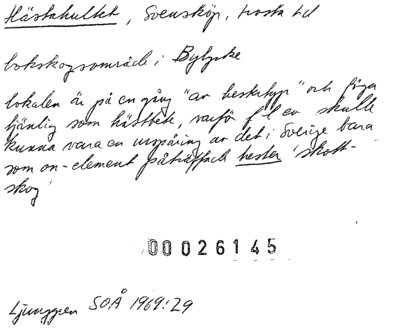 Hästahultet, Svensköp, Frosta hd
bokskogsområde i Bylycke
lokalen är på en gång "av beskaff" och föga
tjänlig som hästbete, varför f l ev skulle
kunna vara en urspåring av det i Sverige bara
som on-element påträffade hester 'skott-
skog'
00026145
Ljunggren SOÅ 1969:29